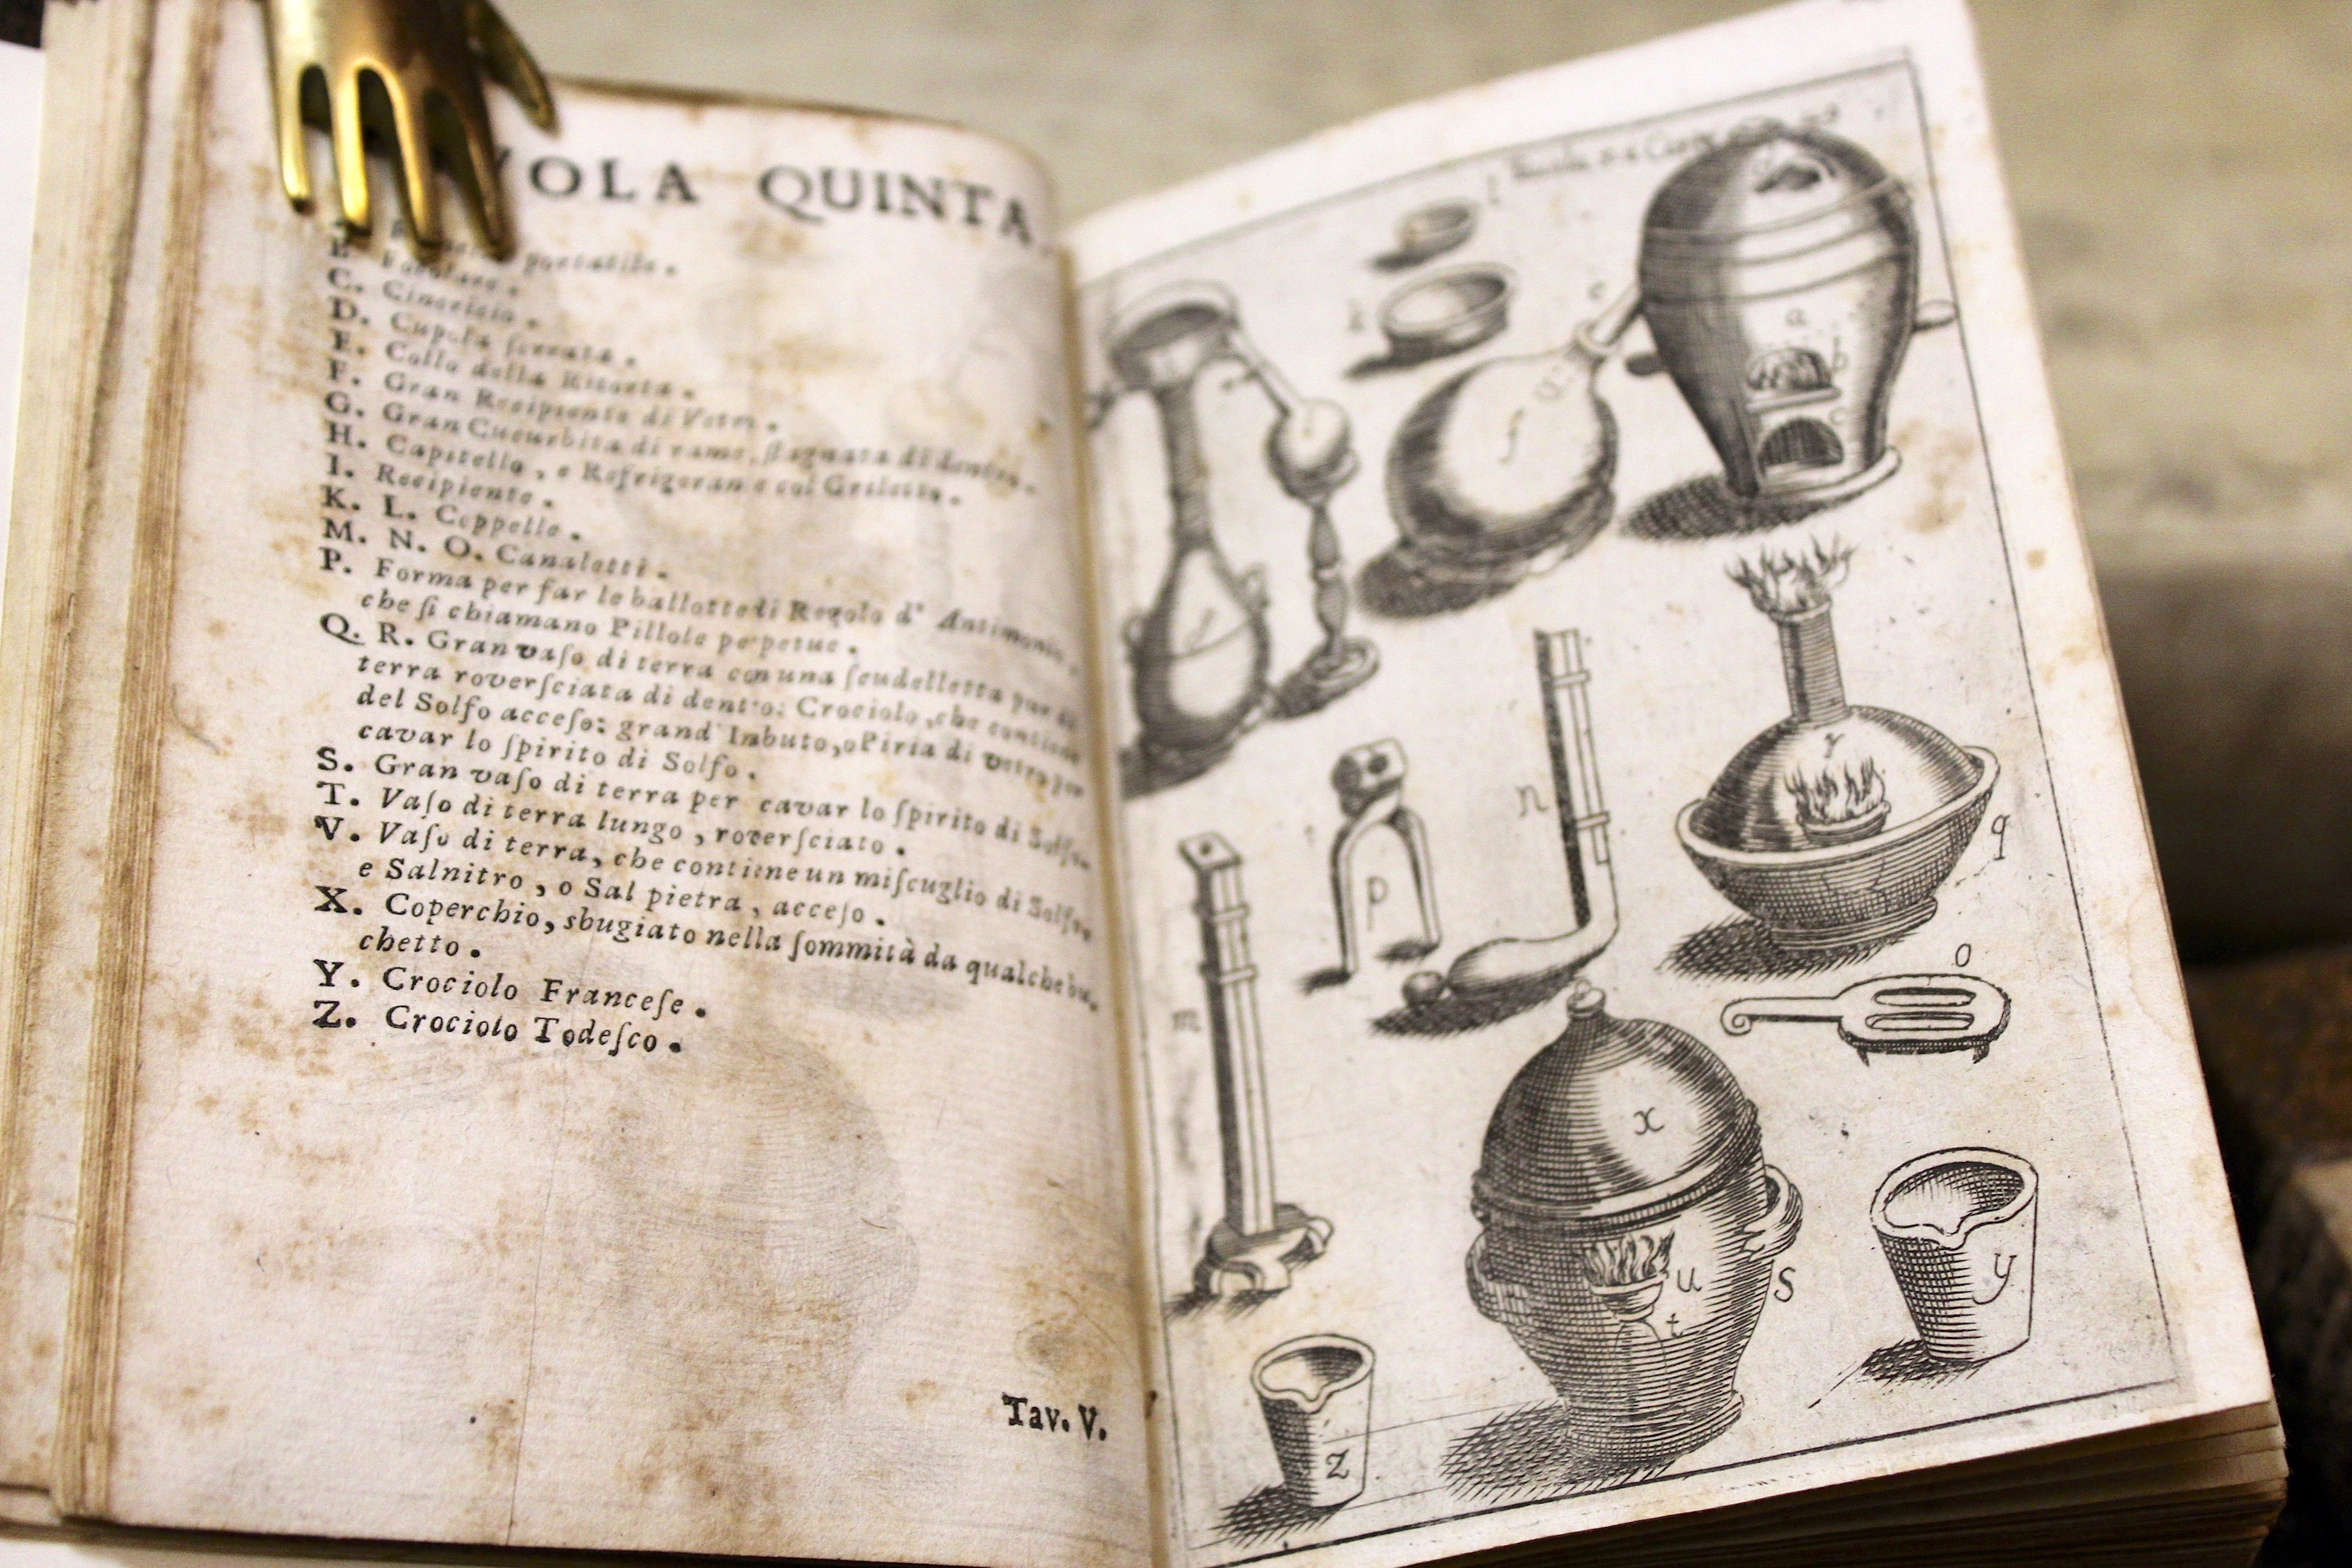 VOLA QUINTA
portatile.
B. Focolare.
C. Cinericio.
D. Cupola serrata.
E. Collo della Ritorta.
F. Gran Recipiente di Vetro.
G. Gran Cucurbita di rame, ſtagnata di dentro.
H. Capitello, e Refrigerante col Griletto.
I. Recipiente.
K. L. Coppelle.
M. N. O. Canaletti.
P. Forma per far le ballotte di Regolo d' Antimonio,
che ſi chiamano Pillole perpetue.
Q. R. Gran vaſo di terra con una ſcudelletta pur di
terra roverſciata di dentro: Crociolo, che contiene
del Solfo acceſo: grand' Inbuto, o Piria di vetro per
cavar lo ſpirito di Solfo.
S. Gran vaſo di terra per cavar lo ſpirito di Solfo.
T. Vaſo di terra lungo, roverſciato.
V. Vaſo di terra, che contiene un miſcuglio di Solfo,
e Salnitro, o Sal pietra, acceſo.
X. Coperchio, sbugiato nella ſommità da qualche bu-
chetto.
Y. Crociolo Franceſe.
Z. Crociolo Todeſco.
Tav. V.
l
e
a
f
b
c
r
n
q
p
o
m
x
u
S
y
t
z